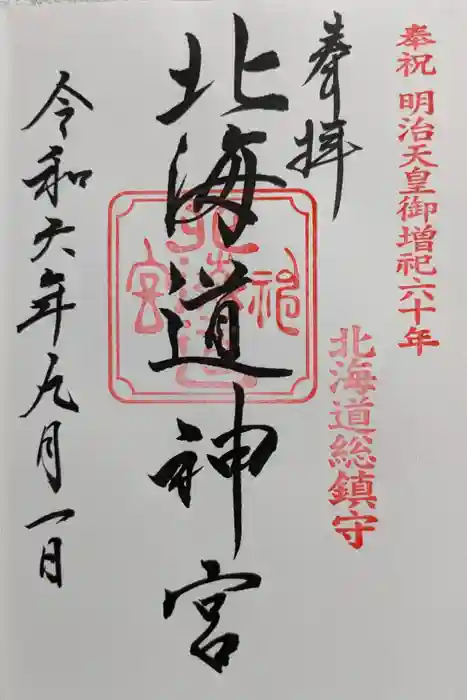 奉祝 明治天皇御増祀六十年
北海道総鎮守
奉拝
北海道神宮
令和六年九月一日